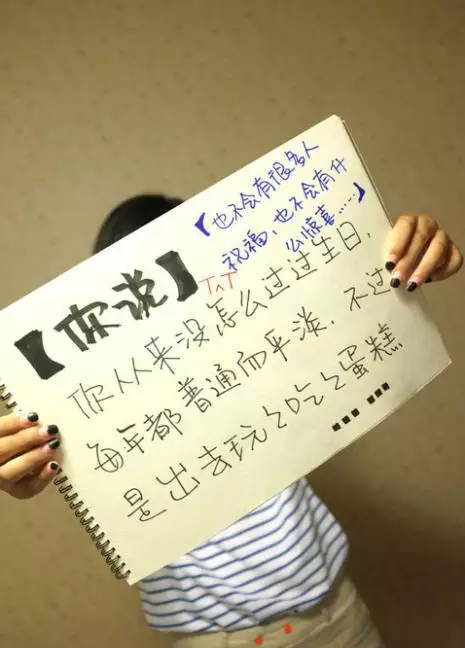 【你说】
【也不会有很多人
祝福，也不会有什
么惊喜……】
T^T
你从来没怎么过过生日，
每年都普通而平淡．不过
是出去玩玩吃吃蛋糕
……